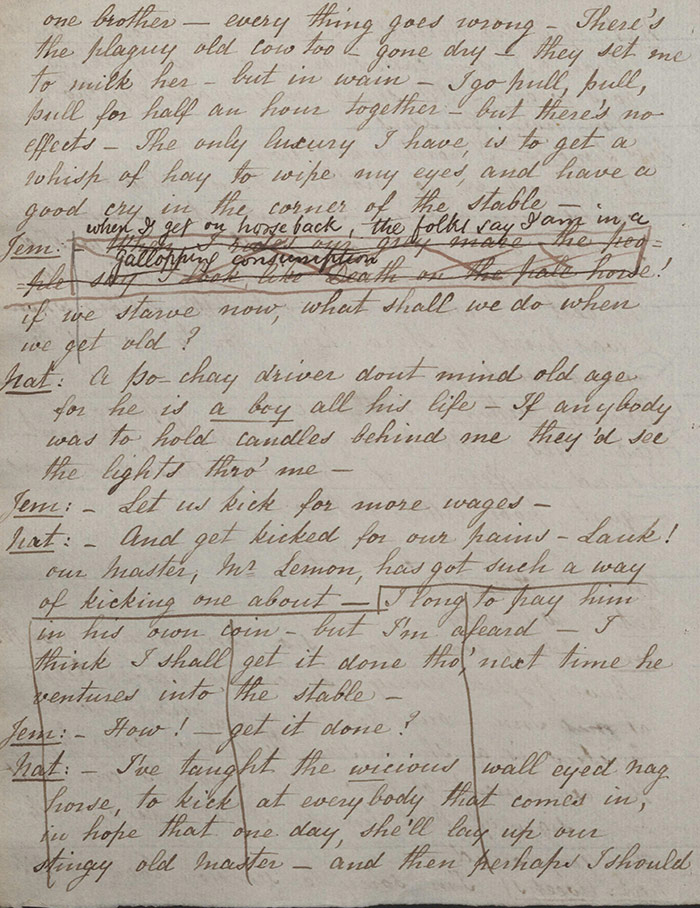 one brother – every thing goes wrong – There's
the plaguy old cow too – gone dry – they set me
to milk her – but in wain – I go pull, pull,
pull for half an hour together – but there's no
effects – The only luxury I have, is to get a
whisp of hay to wipe my eyes, and have a
good cry in the corner of the stable –
when I get on horseback, the folks say I am in a
Jem: – When I rides our grey mare the peo=
gallopping consumption
=ple say I look like Death on the pale horse!
if we starve now, what shall we do when
we get old?
Nat: A po-chay driver dont mind old age
for he is a boy all his life – If anybody
was to hold candles behind me they'd see
the lights thro' me –
Jem: – Let us kick for more wages –
Nat: – And get kicked for our pains – Lauk!
our Master, Mr Lemon, has got such a way
of kicking one about – I long to pay him
in his own coin – but I'm afeard – I
think I shall get it done tho', next time he
ventures into the stable –
Jem: – How! – get it done?
Nat: – I've taught the wicious wall eyed nag
horse, to kick at everybody that comes in,
in hope that one day, she'll lay up our
stingy old Master – and then perhaps I should